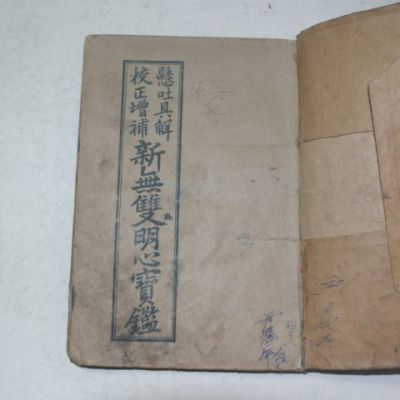 懸吐具解
校正增補
新無雙明心寶鑑